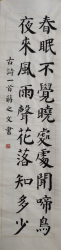 春眠不覺曉處處聞啼鳥
夜来風雨聲花落知多少
古詩一首蔣之文書